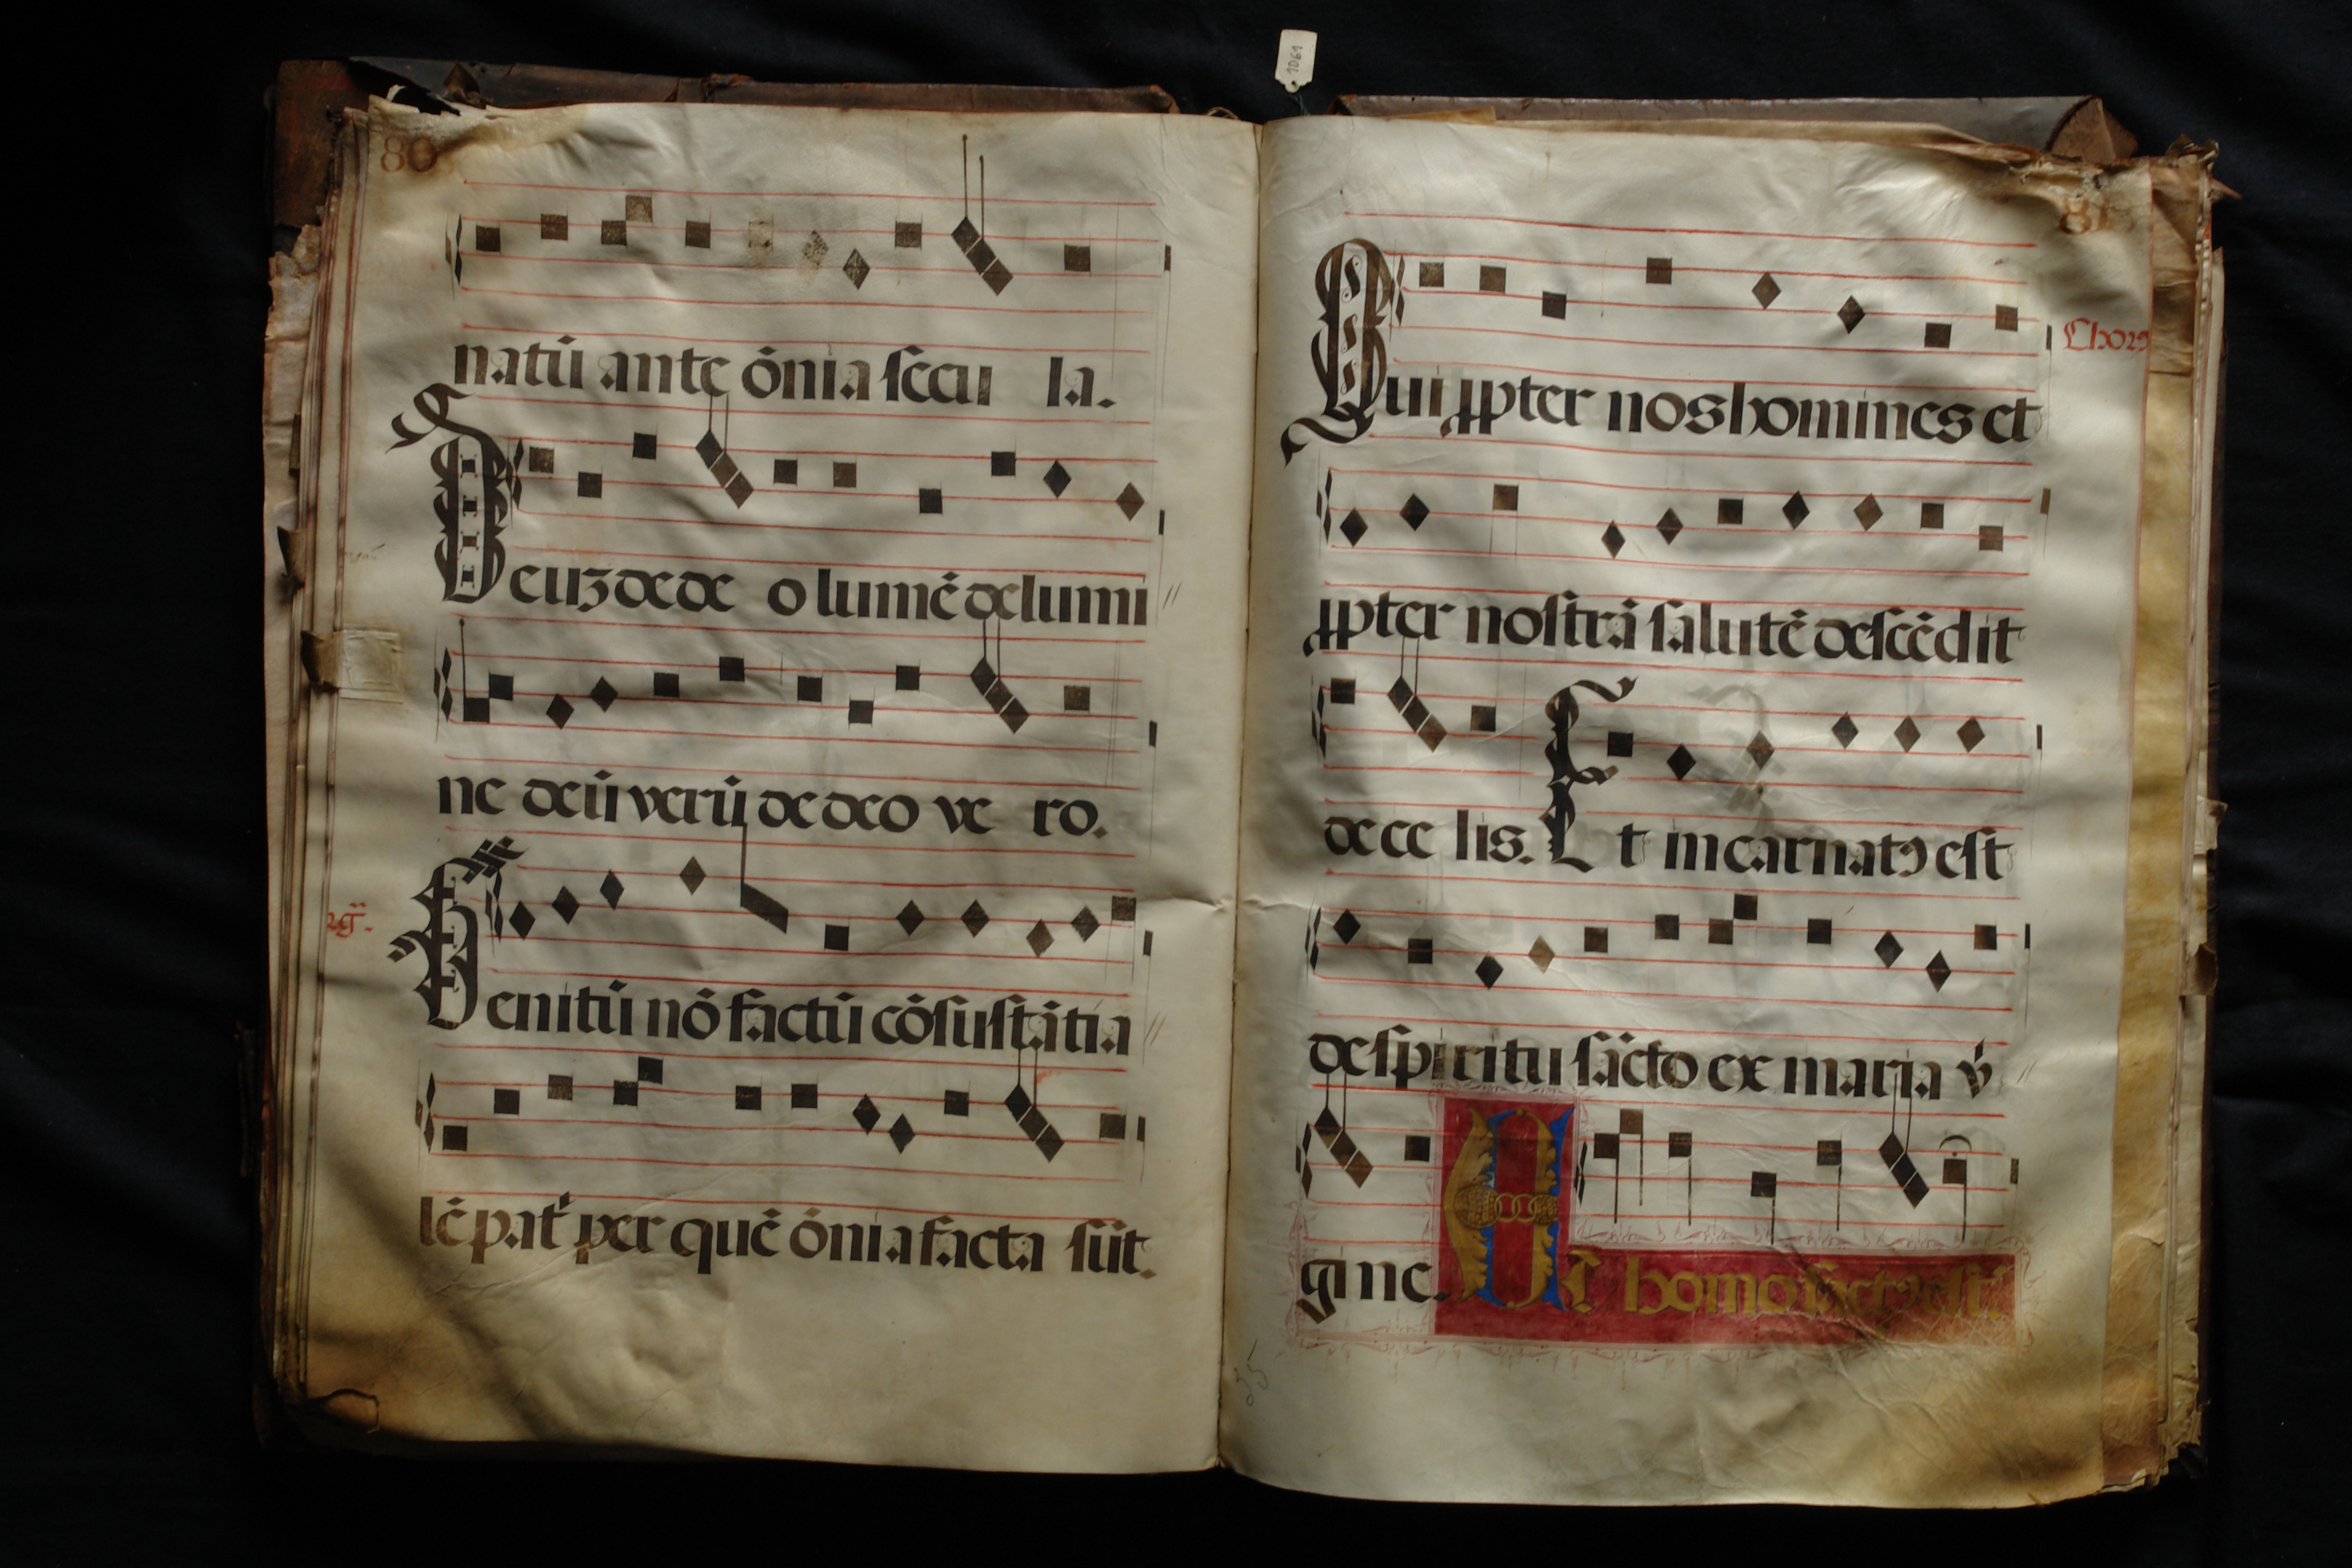 1061
80
natū ante ōnia secu la.
Deuʒ de de o lumē de lumi
ne deū verū de deo ve ro.
Genitū nō factū cōsustātia
lē pat͛ per quē ōnia facta sūt.
81
Qui ꝓpter nos homines et
Chorꝰ
ꝓpter nostrā salutē descēdit
de ce lis. Et incarnatꝰ est
de spiritu sācto ex maria v̓
gine. Et homo factꝰ est.
35